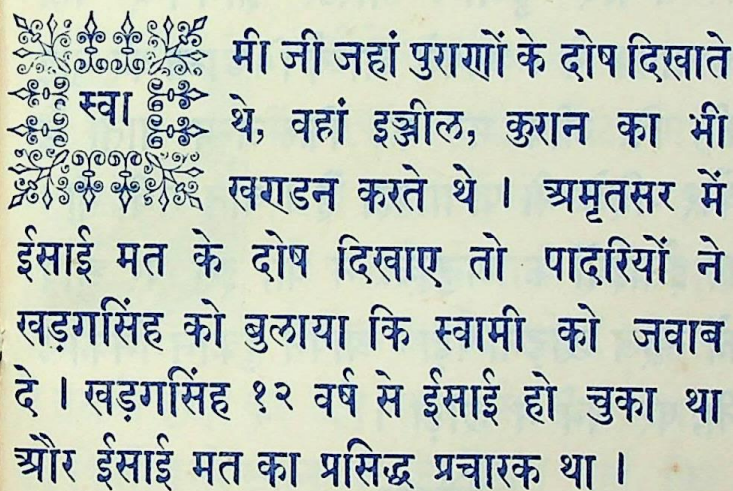 स्वामी जी जहां पुराणों के दोष दिखाते
थे, वहां इञ्जील, कुरान का भी
खण्डन करते थे । अमृतसर में
ईसाई मत के दोष दिखाए तो पादरियों ने
खड़गसिंह को बुलाया कि स्वामी को जवाब
दे । खड़गसिंह १२ वर्ष से ईसाई हो चुका था
और ईसाई मत का प्रसिद्ध प्रचारक था ।